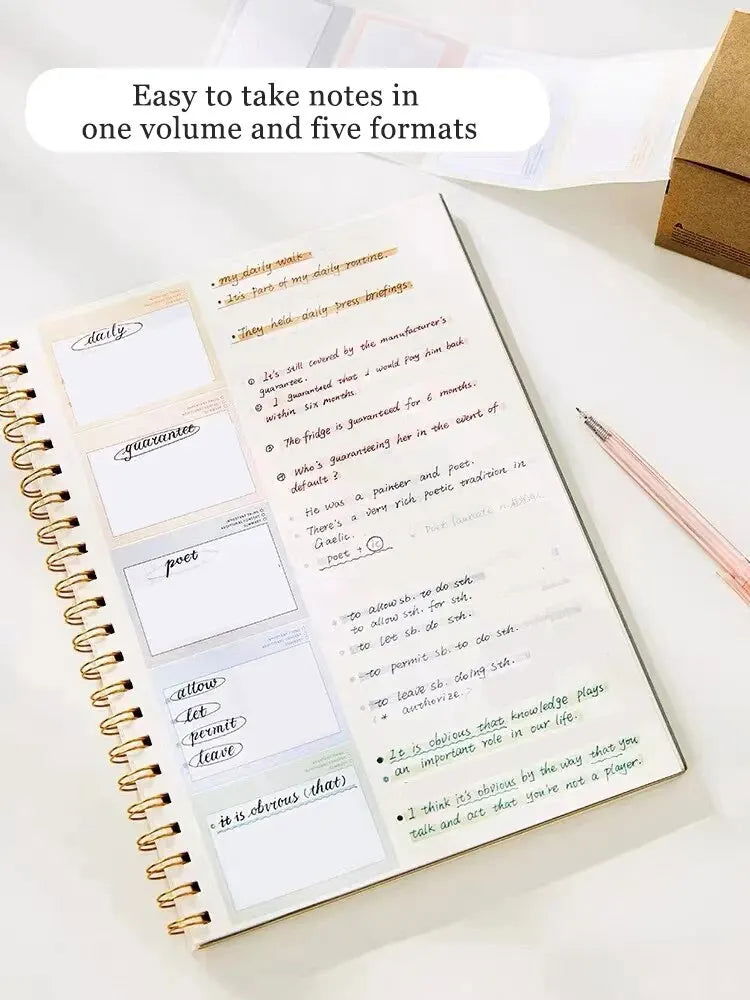 Easy to take notes in
one volume and five formats
daily
• my daily walk.
• It's part of my daily routine.
• They held daily press briefings.
guarantee
① It's still covered by the manufacturer's
guarantee.
② I guaranteed that I would pay him back
within six months.
③ The fridge is guaranteed for 6 months.
④ Who's guaranteeing her in the event of
default?
IMPORTANT THING
ADDITIONAL CONTENT
SUMMARY
poet
• He was a painter and poet.
• There's a very rich poetic tradition in
Gaelic.
• poet + ic
• Poet laureate n.
allow
let
permit
leave
• to allow sb. to do sth.
to allow sth. for sth.
• to let sb. do sth.
• to permit sb. to do sth.
• to leave sb. doing sth.
(* authorize.)
• it is obvious (that)
• It is obvious that knowledge plays
an important role in our life.
• I think it's obvious by the way that you
talk and act that you're not a player.